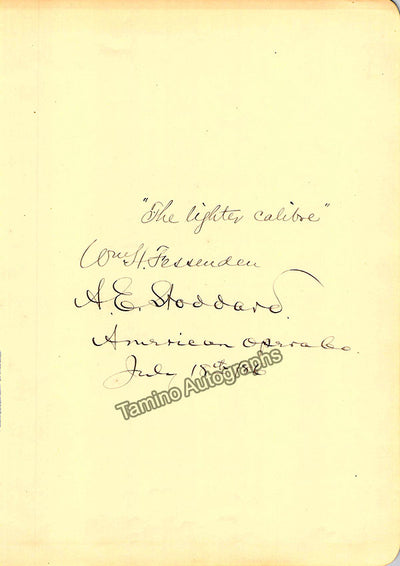 "The lighter calibre"
Wm H. Fessenden
A. E. Stoddard.
American Opera Co.
July 18th '86
Tamino Autographs